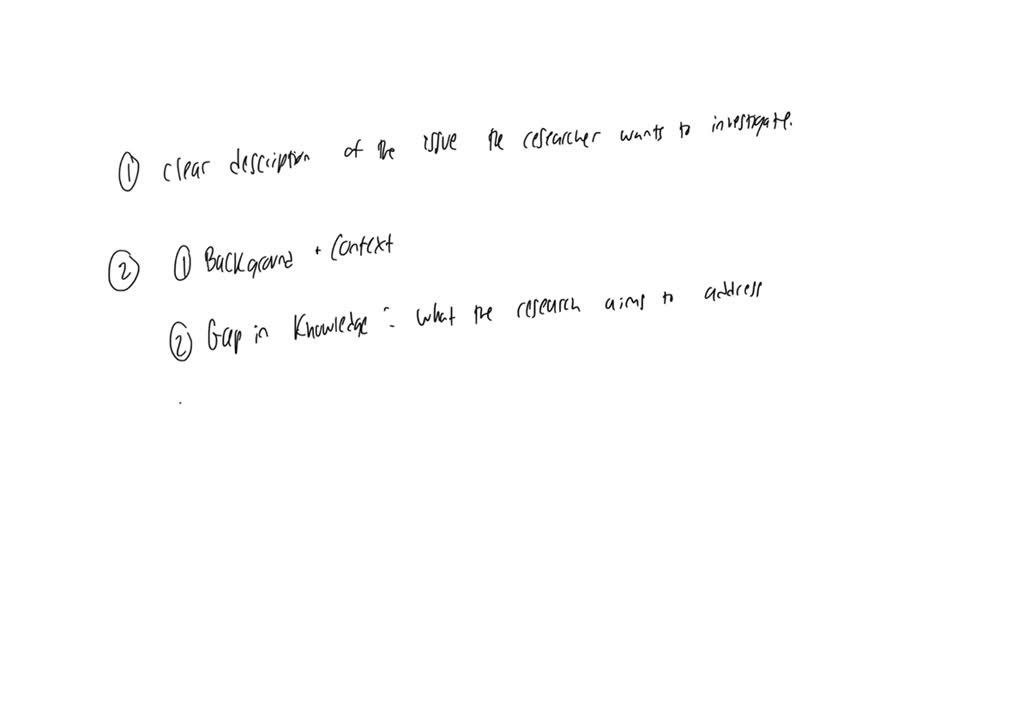 ① Clear description of the issue the researcher wants to investigate.
② ① Background + Context
② Gap in Knowledge : what the research aims to address